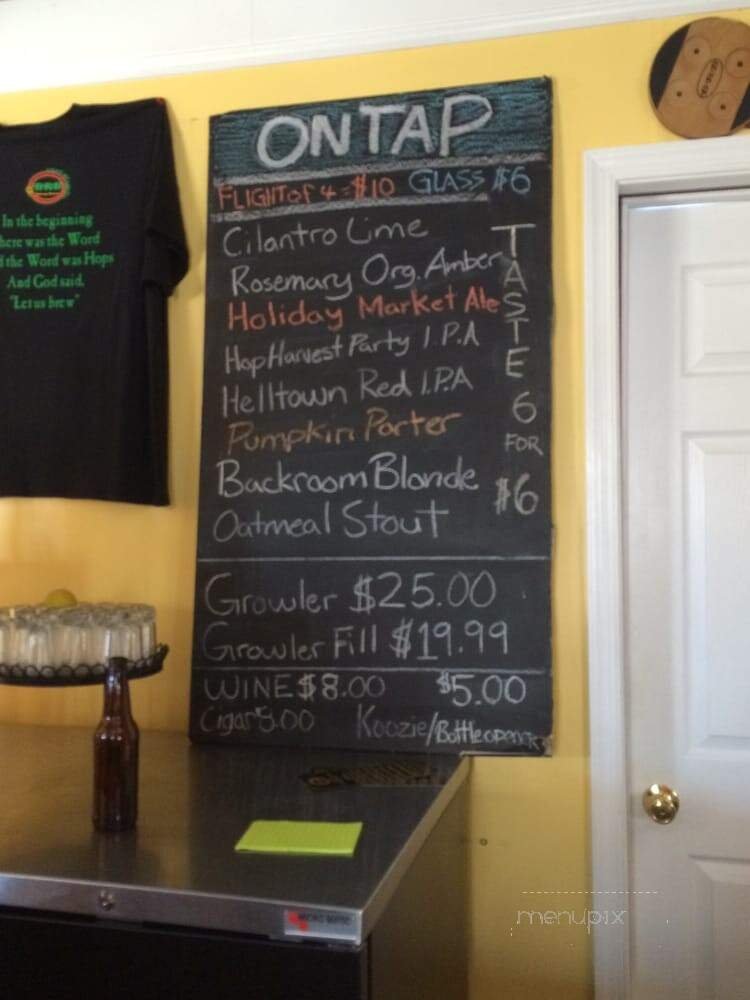 ON TAP
FLIGHT of 4 = $10 GLASS $6
Cilantro Lime
Rosemary Org. Amber
Holiday Market Ale
Hop Harvest Party I.P.A
Helltown Red I.P.A
Pumpkin Porter
Backroom Blonde
Oatmeal Stout
TASTE
6
FOR
$6
Growler $25.00
Growler Fill $19.99
WINE $8.00 $5.00
Cigar 9.00 Koozie/Bottle opener
In the beginning
here was the Word
the Word was Hops
And God said,
"Let us brew"
menupix